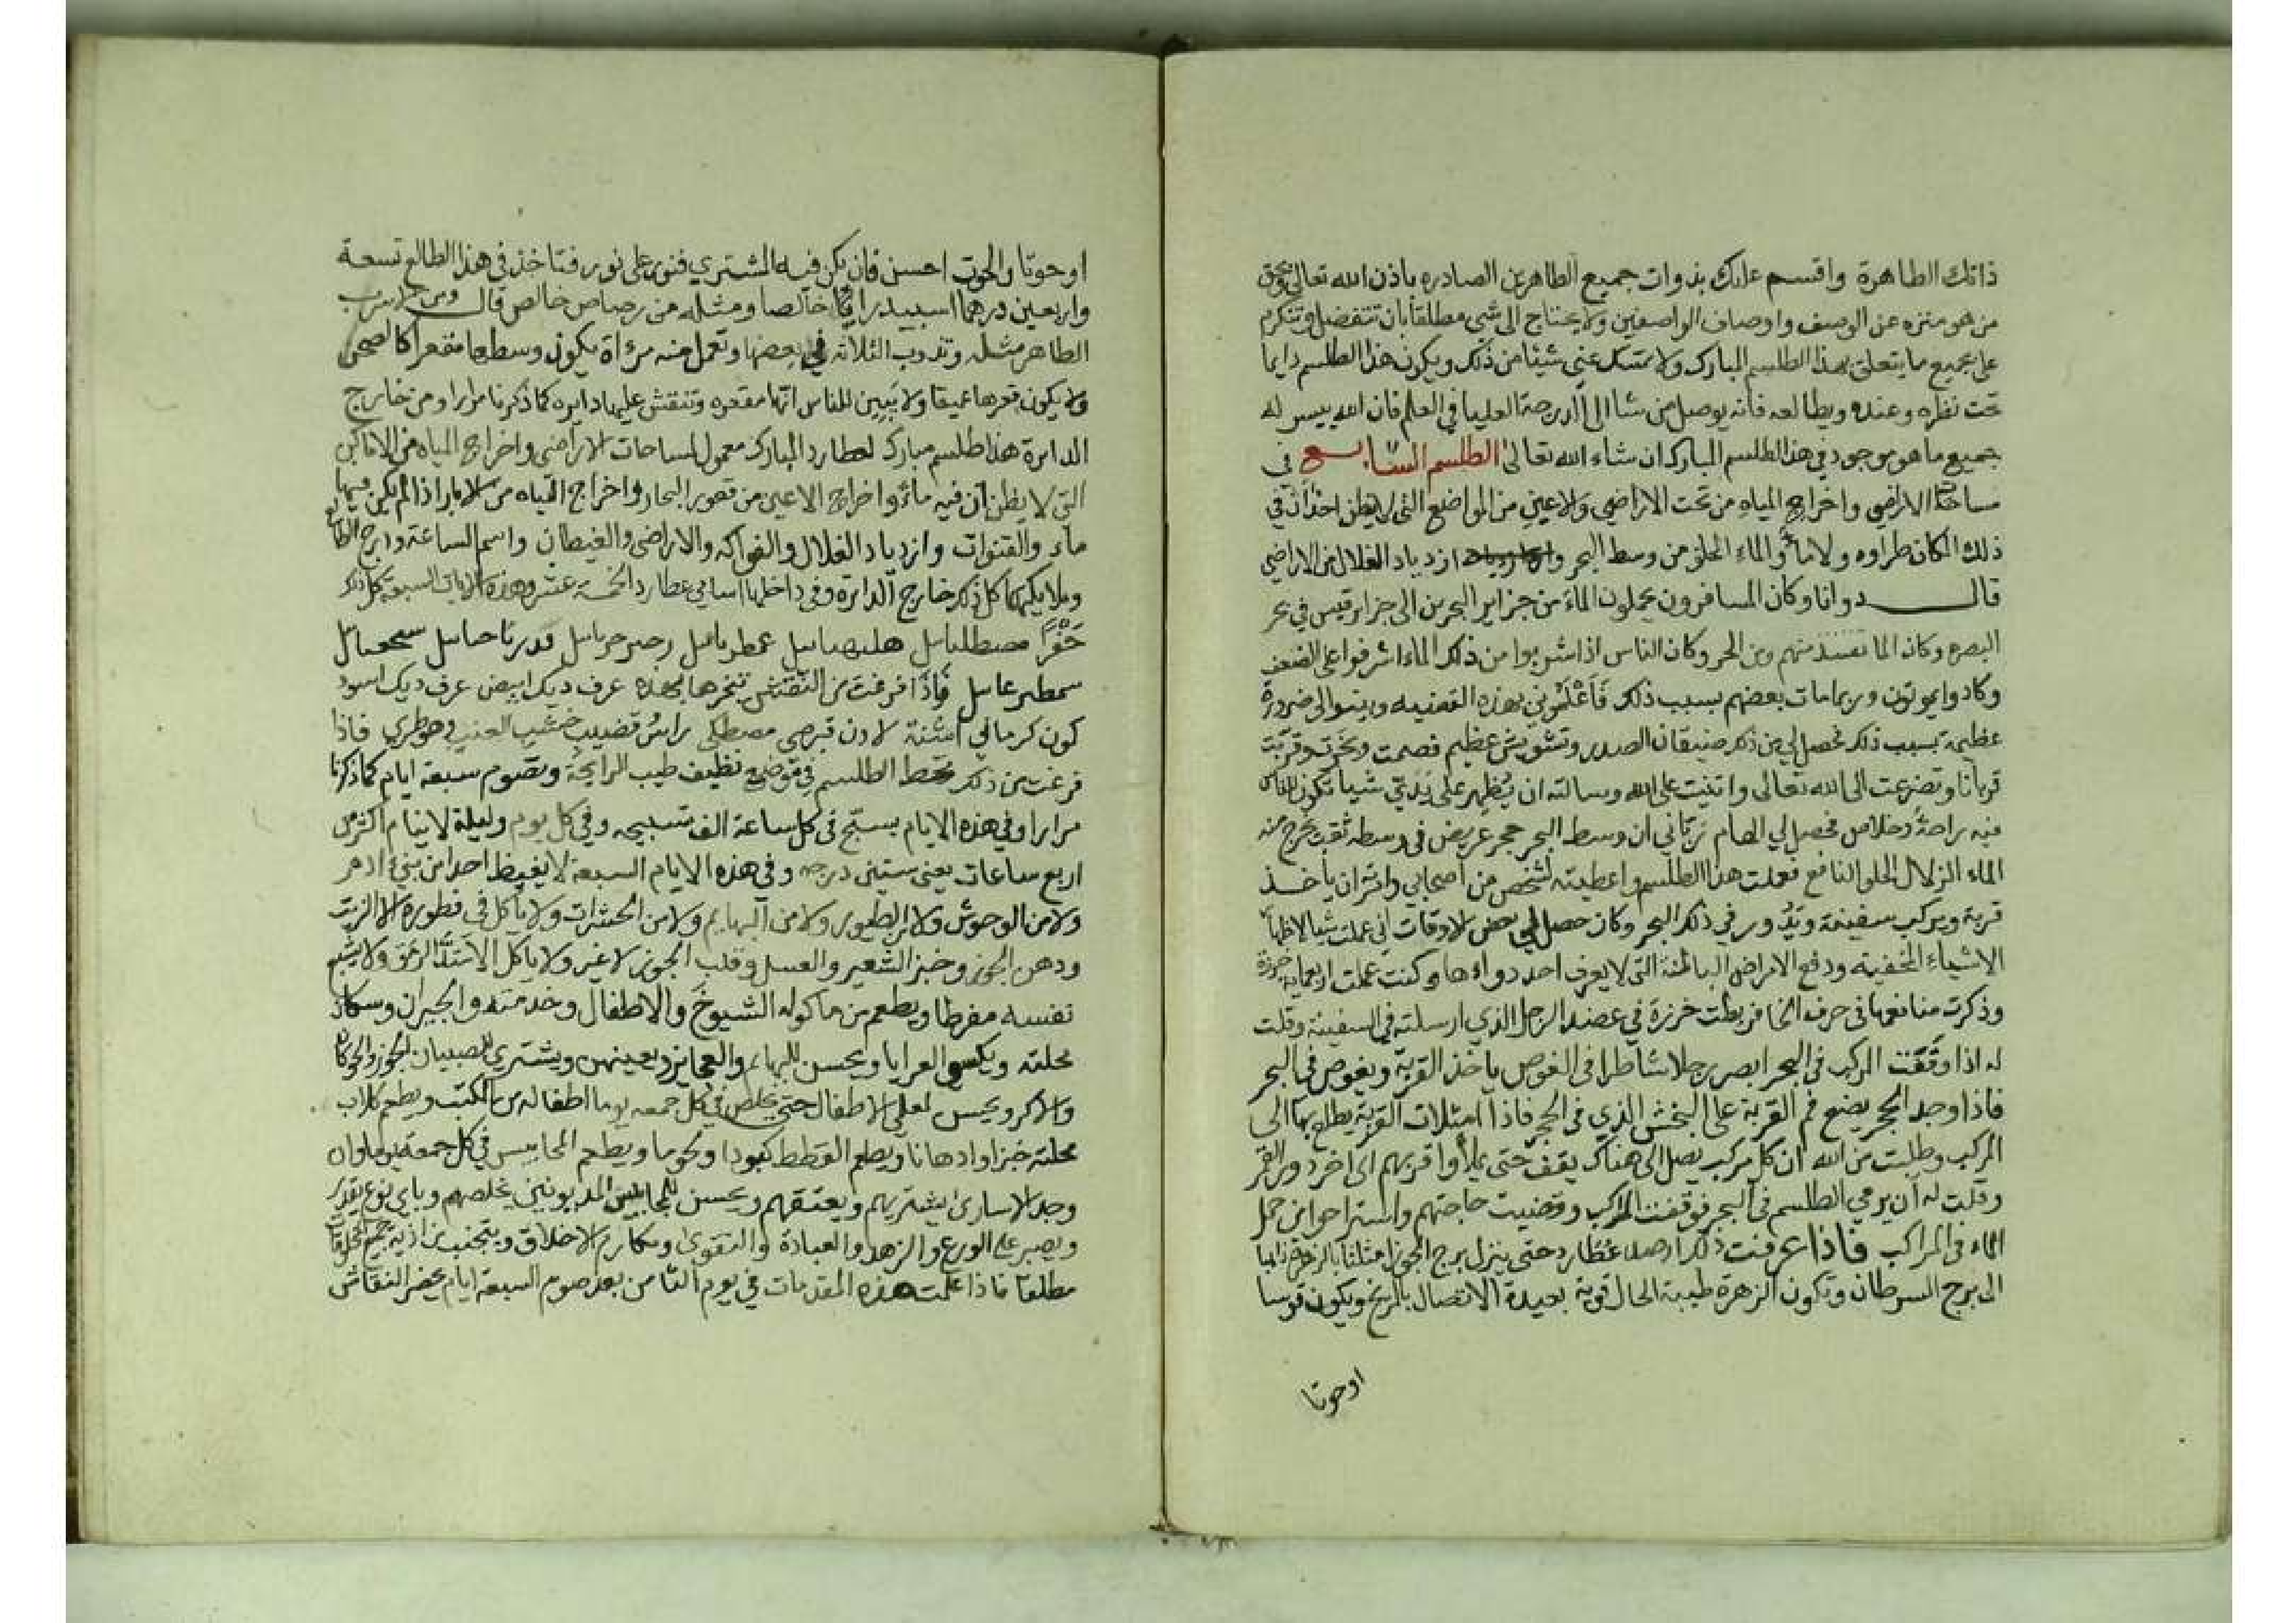 ذاتك الطاهرة واقسم عليك بذوات جميع الطاهرين الصادره باذن الله تعالى بحق
من هو منزه عن الوصف واوصاف الواصفين ولا يحتاج الى شي مطلقا بان تتفضل وتتكرم
على بجميع ما يتعلق بهذا الطلسم المبارك ولا تمسك عني شيئا من ذلك ويكون هذا الطلسم دايما
تحت نظره وعنده ويطالعه فانه يوصل من شا الى الدرجة العليا في العلم فان الله ييسر له
جميع ما هو موجود في هذا الطلسم المبارك ان شاء الله تعالى الطلسم السابع في
مساحة الاراضي واخراج المياه من تحت الاراضي والاعين من المواضع التى لا يظن احد ان في
ذلك المكان طراوه ولا ماء والماء الحلو من وسط البحر وازدياد الغلال من الاراضي
قال دوانا وكان المسافرون يحملون الماء من جزاير البحرين الى جزاير قيس في بحر
البصره وكان الما منهم من الحر وكان الناس اذا شربوا من ذلك الماء اشرفوا على الضعف
وكادوا يموتون وربما مات بعضهم بسبب ذلك فاعلموني بهذه القضيه وبينوا لي ضرورة
عظيمة بسبب ذلك فحصل لي من ذلك ضيقان الصدر وتشويش عظيم فصمت وبخرت وقربت
قربانا وتضرعت الى الله تعالى واثنيت على الله وسالته ان يظهر على يدي شيا تكون للناس
فيه راحة وخلاص فحصل لي الهام رباني ان وسط البحر حجر عريض في وسطه ثقب يخرج منه
الماء الزلال الحلو النافع فعملت هذا الطلسم واعطيته لشخص من اصحابي وامرته ان ياخذ
قربة ويركب سفينة ويدور في ذلك البحر وكان حصل لي بعض الاوقات اني عملت شيا لاظهار
الاشياء المخفية ودفع الامراض الباطنة التى لا يعرف احد دواءها وكنت عملت اربعماية خرزة
وذكرت منافعها في حرف الخا فربطت خرزة في عضد الرجل الذي ارسلته في السفينة وقلت
له اذا وقفت المركب في البحر ابصر رجلا شاطرا في الغوص ياخذ القربة ويغوص في البحر
فاذا وجد الحجر يضع فم القربة على البخش الذي في الحجر فاذا امتلات القربة يطلع بها الى
المركب وطلبت من الله ان كل مركب يصل الى هناك يقف حتى يملأوا قربهم الى اخرد
وقلت له ان يرمي الطلسم في البحر فوقفت المراكب وقضيت حاجتهم واستراحوا من حمل
الماء في المراكب فاذا عرفت ذلك ارصد عطارد حتى ينزل برج الجوزا مثلثا بالزهرة ذاهبا
الى برج السرطان وتكون الزهرة طيبة الحال قوية بعيدة الاتصال بالمريخ ويكون قوسا
او حوتا
او حوتا والحوت احسن فان يكن فيه المشتري فنور على نور فتاخذ في هذا الطالع تسعة
واربعين درهما اسبيدرايكا خالصا ومثله من رصاص خالص قال ومن الاسرب
الطاهر مثله وتذوب الثلاثه في بعضها وتعمل منه مرءاة يكون وسطها مقعرا كالصحن
ولا يكون قعرها عميقا ولا يبين للناس انها مقعره وتنقش عليها دايره كما ذكرنا مرارا ومن خارج
الدايرة هذا طلسم مبارك لعطارد المبارك معمول لمساحات الاراضي واخراج المياه من الاماكن
التى لا يظن ان فيه ماء واخراج الاعين من قعور البحار واخراج المياه من الابار اذا لم يكن فيها
ماء والقنوات وازدياد الغلال والفواكه والاراضي والغيطان واسم الساعة وابرج الطالع
وملايكتهما كل ذلك خارج الدايرة وفي داخلها اسامي عطارد الخمسة عشر وهذه الاسامي السبعة كل ذلك
حفرا
فاذا فرغت من النقش تبخرها بهذه عرف ديك ابيض عرف ديك اسود
كون كرماني اشنة لادن قبرصي مصطكى راس قضيب خشب العنب فاذا
فرغت من ذلك تحط الطلسم في موضع نظيف طيب الرايحة وتصوم سبعة ايام كما ذكرنا
مرارا وفي هذه الايام يسبح في كل ساعة الف تسبيحه وفي كل يوم وليلة لا ينام اكثر من
اربع ساعات يعني ستين درجه وفي هذه الايام السبعة لا يغيظ احدا من بني ادم
ولا من الوحوش ولا من الطيور ولا من البهايم ولا من الحشرات ولا ياكل في فطوره الا الزيت
ودهن الجوز وخبز الشعير والعسل وقلب الجوز لا غير ولا ياكل الا سد الرمق ولا يشبع
نفسه مفرطا ويطعم من ماكوله الشيوخ والاطفال وخدمته والجيران وسكان
محلته ويكسي العرايا ويحسن للبهايم والعجايز يعينهن ويشتري للصبيان الجوز
والاكر ويحسن لمعلمي الاطفال حتى يخلص في كل جمعه يوما اطفاله من المكتب ويطعم كلاب
محلته خبزا وادهانا ويطعم القطط كبودا ولحوما ويطعم المحابيس في كل جمعة يوما وان
وجد الاسارى يشتريهم ويعتقهم ويحسن للمحابيس المديونين يخلصهم وباي نوع يقدر
ويصبر على الورع والزهد والعبادة والتقوى ومكارم الاخلاق ويتجنب من اذية جميع المخلوقات
مطلقا فاذا علمت هذه المقدمات في يوم الثامن بعد صوم السبعة ايام يحضر النقاش